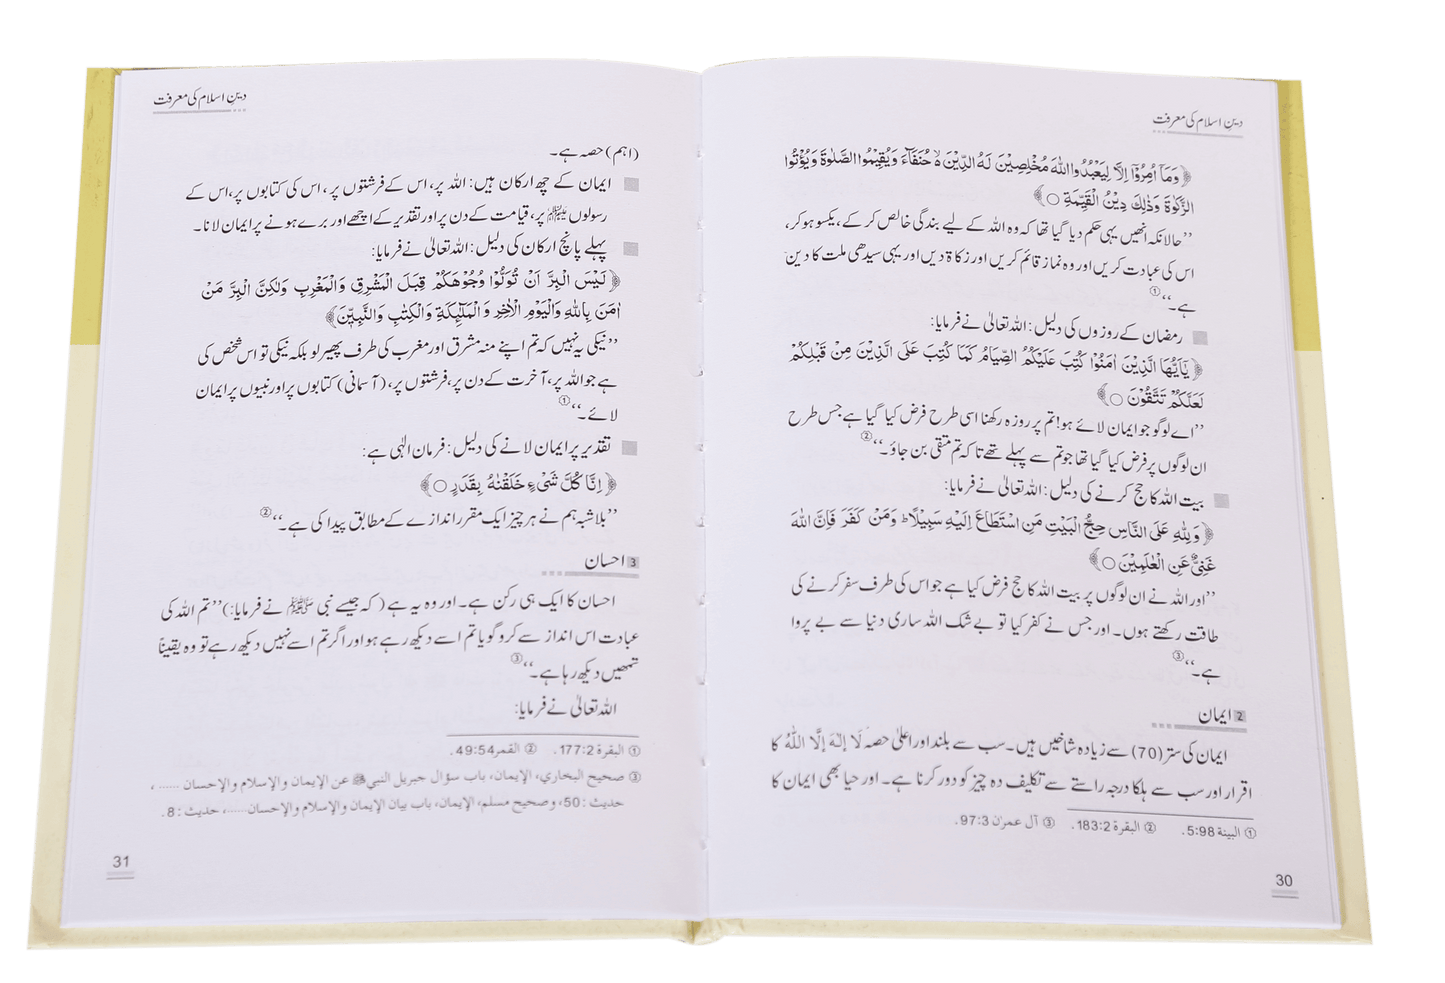 دینِ اسلام کی معرفت
﴿وَمَآ اُمِرُوْٓا اِلَّا لِيَعْبُدُوا اللّٰهَ مُخْلِصِيْنَ لَهُ الدِّيْنَ ۙ حُنَفَآءَ وَيُقِيْمُوا الصَّلٰوةَ وَيُؤْتُوا
الزَّكٰوةَ وَذٰلِكَ دِيْنُ الْقَيِّمَةِ ○﴾
’’حالانکہ انھیں یہی حکم دیا گیا تھا کہ وہ اللہ کے لیے بندگی خالص کر کے، یکسو ہو کر،
اس کی عبادت کریں اور وہ نماز قائم کریں اور زکاۃ دیں اور یہی سیدھی ملت کا دین
ہے۔‘‘①
رمضان کے روزوں کی دلیل: اللہ تعالیٰ نے فرمایا:
﴿يٰٓاَيُّهَا الَّذِيْنَ اٰمَنُوْا كُتِبَ عَلَيْكُمُ الصِّيَامُ كَمَا كُتِبَ عَلَى الَّذِيْنَ مِنْ قَبْلِكُمْ
لَعَلَّكُمْ تَتَّقُوْنَ ○﴾
’’اے لوگو جو ایمان لائے ہو! تم پر روزہ رکھنا اسی طرح فرض کیا گیا ہے جس طرح
ان لوگوں پر فرض کیا گیا تھا جو تم سے پہلے تھے تاکہ تم متقی بن جاؤ۔‘‘②
بیت اللہ کا حج کرنے کی دلیل: اللہ تعالیٰ نے فرمایا:
﴿وَلِلّٰهِ عَلَى النَّاسِ حِجُّ الْبَيْتِ مَنِ اسْتَطَاعَ اِلَيْهِ سَبِيْلًا ؕ وَمَنْ كَفَرَ فَاِنَّ اللّٰهَ
غَنِيٌّ عَنِ الْعٰلَمِيْنَ ○﴾
’’اور اللہ نے ان لوگوں پر بیت اللہ کا حج فرض کیا ہے جو اس کی طرف سفر کرنے کی
طاقت رکھتے ہوں۔ اور جس نے کفر کیا تو بے شک اللہ ساری دنیا سے بے پروا
ہے۔‘‘③
2 ایمان
ایمان کی ستر (70) سے زیادہ شاخیں ہیں۔ سب سے بلند اور اعلیٰ حصہ لَا إِلٰهَ إِلَّا اللّٰهُ کا
اقرار اور سب سے ہلکا درجہ راستے سے تکلیف دہ چیز کو دور کرنا ہے۔ اور حیا بھی ایمان کا
① البینة 5:98. ② البقرة 183:2. ③ آل عمرٰن 97:3.
30
دینِ اسلام کی معرفت
(اہم) حصہ ہے۔
ایمان کے چھ ارکان ہیں: اللہ پر، اس کے فرشتوں پر، اس کی کتابوں پر، اس کے
رسولوں ﷺ پر، قیامت کے دن پر اور تقدیر کے اچھے اور برے ہونے پر ایمان لانا۔
پہلے پانچ ارکان کی دلیل: اللہ تعالیٰ نے فرمایا:
﴿لَيْسَ الْبِرَّ اَنْ تُوَلُّوْا وُجُوْهَكُمْ قِبَلَ الْمَشْرِقِ وَالْمَغْرِبِ وَلٰكِنَّ الْبِرَّ مَنْ
اٰمَنَ بِاللّٰهِ وَالْيَوْمِ الْاٰخِرِ وَ الْمَلٰٓئِكَةِ وَالْكِتٰبِ وَالنَّبِيّٖنَ﴾
’’نیکی یہ نہیں کہ تم اپنے منہ مشرق اور مغرب کی طرف پھیر لو بلکہ نیکی تو اس شخص کی
ہے جو اللہ پر، آخرت کے دن پر، فرشتوں پر، (آسمانی) کتابوں پر اور نبیوں پر ایمان
لائے۔‘‘①
تقدیر پر ایمان لانے کی دلیل: فرمان الٰہی ہے:
﴿اِنَّا كُلَّ شَيْءٍ خَلَقْنٰهُ بِقَدَرٍ ○﴾
’’بلاشبہ ہم نے ہر چیز ایک مقرر اندازے کے مطابق پیدا کی ہے۔‘‘②
3 احسان
احسان کا ایک ہی رکن ہے۔ اور وہ یہ ہے (کہ جیسے نبی ﷺ نے فرمایا:) ’’تم اللہ کی
عبادت اس انداز سے کرو گویا تم اسے دیکھ رہے ہو اور اگر تم اسے نہیں دیکھ رہے تو وہ یقیناً
تمھیں دیکھ رہا ہے۔‘‘③
اللہ تعالیٰ نے فرمایا:
① البقرة 177:2. ② القمر 49:54.
③ صحيح البخاري، الإيمان، باب سؤال جبريل النبي ﷺ عن الإيمان والإسلام والإحسان ......،
حديث: 50، وصحيح مسلم، الإيمان، باب بيان الإيمان والإسلام والإحسان ......، حديث: 8.
31